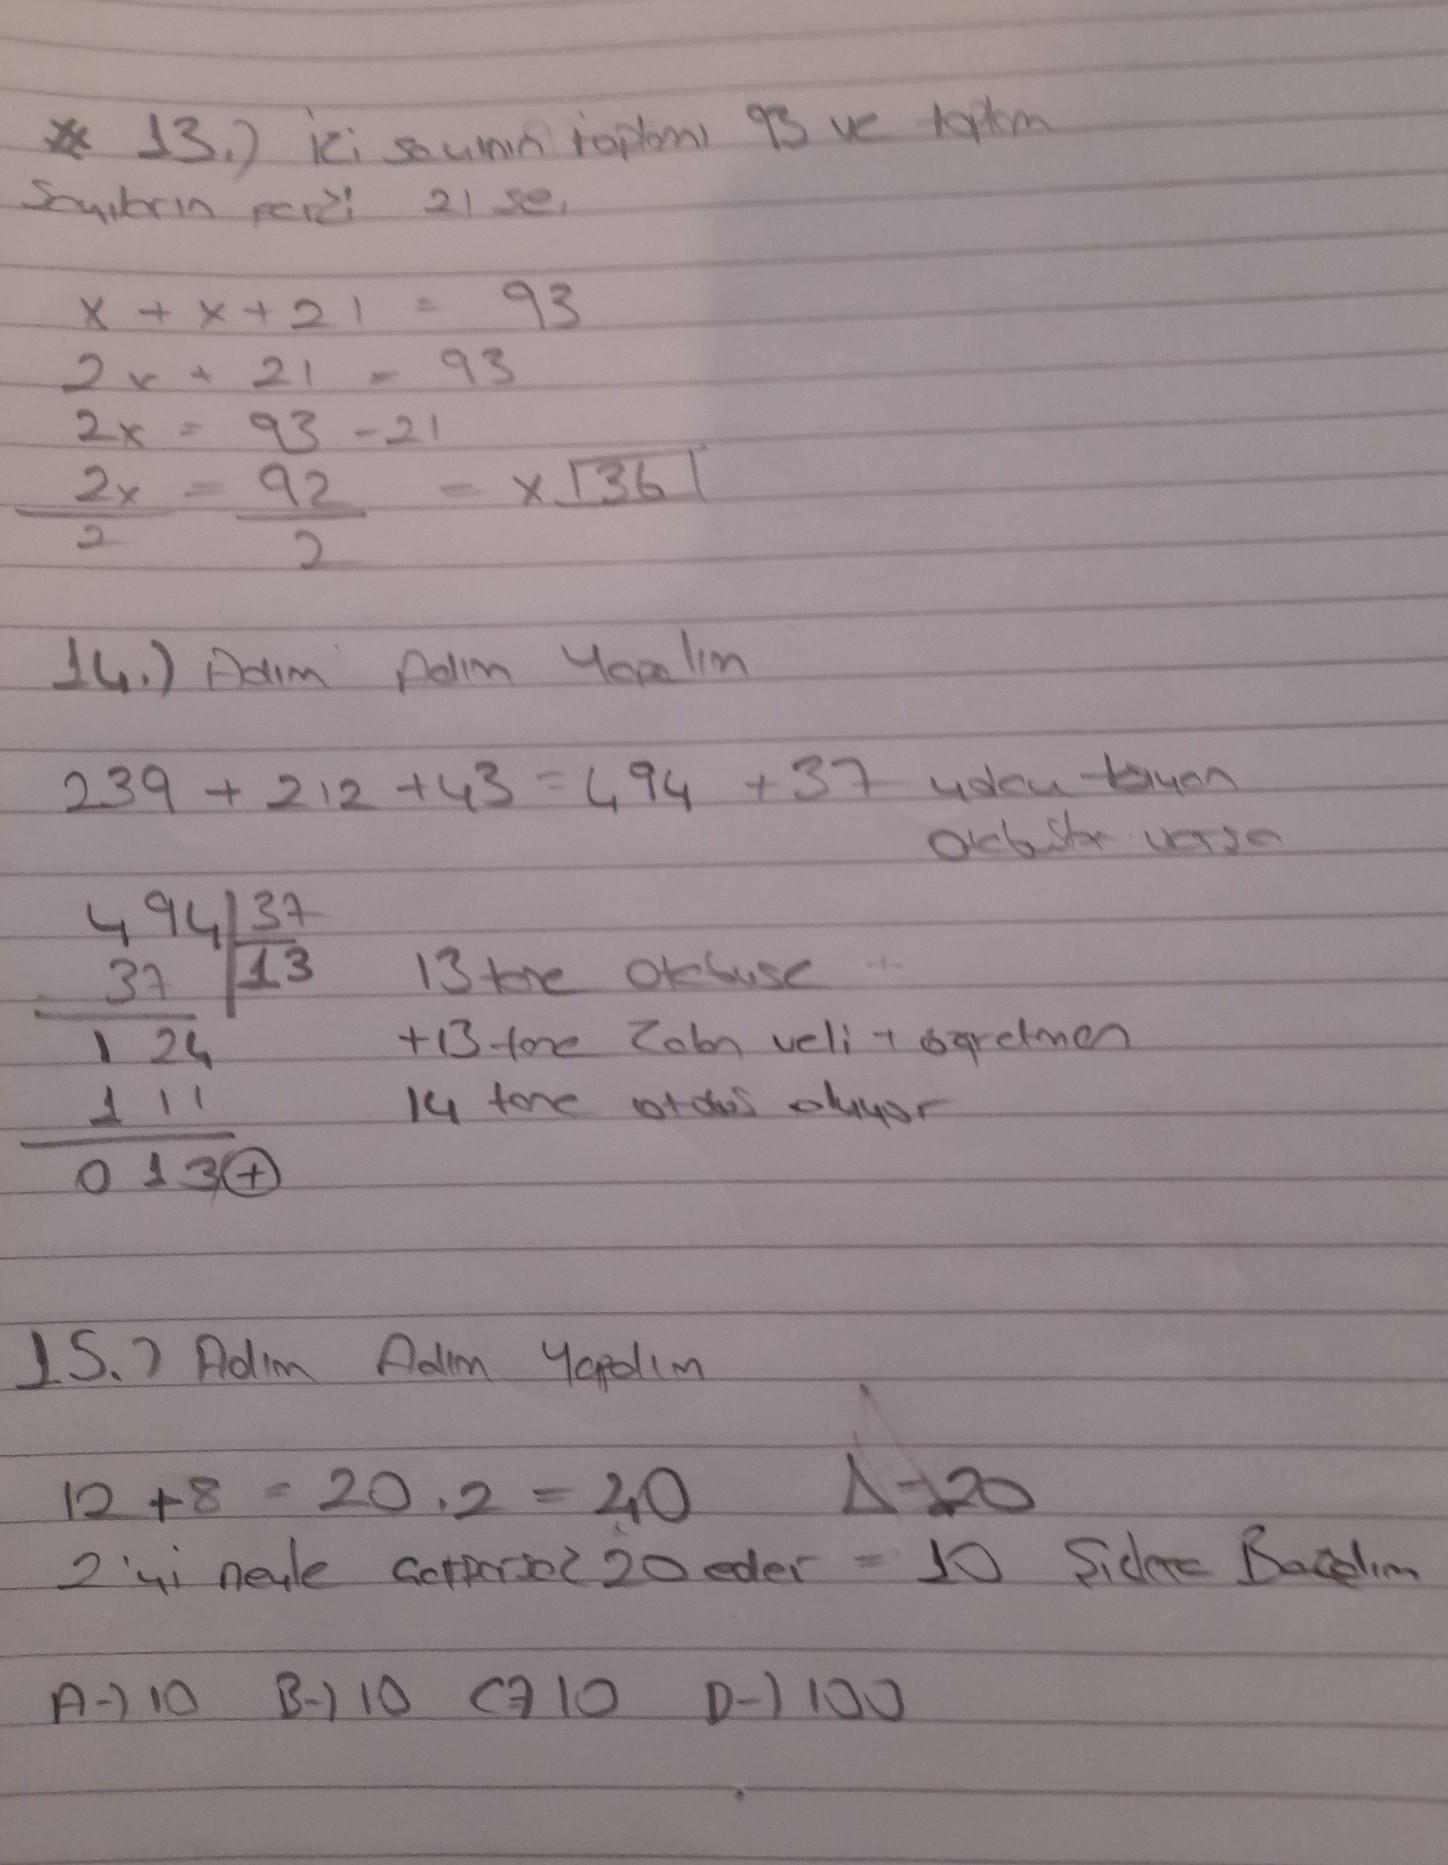 * 13.) İki sayının toplamı 93 ve toplam
Sayıların farkı 21 se,
x + x + 21 = 93
2x + 21 = 93
2x = 93 - 21
2x = 92 = x 36
2 2
14.) Adım Adım Yapalım
239 + 212 + 43 = 494 + 37 yolcu taşıyan
Otobüsler varsa
494 37
37 13 13 tane Otobüse +
1 24 +13 tane kalan veli + öğretmen
1 11 14 tane otobüs oluyor
0 13 +
15.) Adım Adım Yapalım
12 + 8 = 20 . 2 = 40 Δ→20
2'yi neyle çarparsak 20 eder = 10 Şıklara Bakalım
A→10 B→10 C→10 D→100